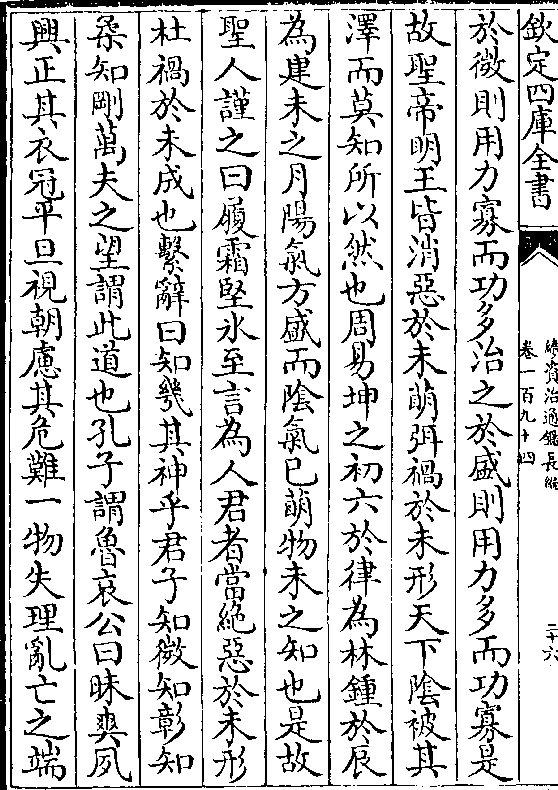 欽定四庫全書
續資治通鑑長編
卷一百九十四
二十六
於微則用力寡而功多治之於盛則用力多而功寡是
故聖帝明王皆消惡於未萌弭禍於未形天下陰被其
澤而莫知所以然也周易坤之初六於律為林鍾於辰
為建未之月陽氣方盛而陰氣已萌物未之知也是故
聖人謹之曰履霜堅氷至言為人君者當絶惡於未形
杜禍於未成也繫辭曰知幾其神乎君子知微知彰知
柔知剛萬夫之望謂此道也孔子謂魯哀公曰昧爽夙
興正其衣冠平旦視朝慮其危難一物失理亂亡之端